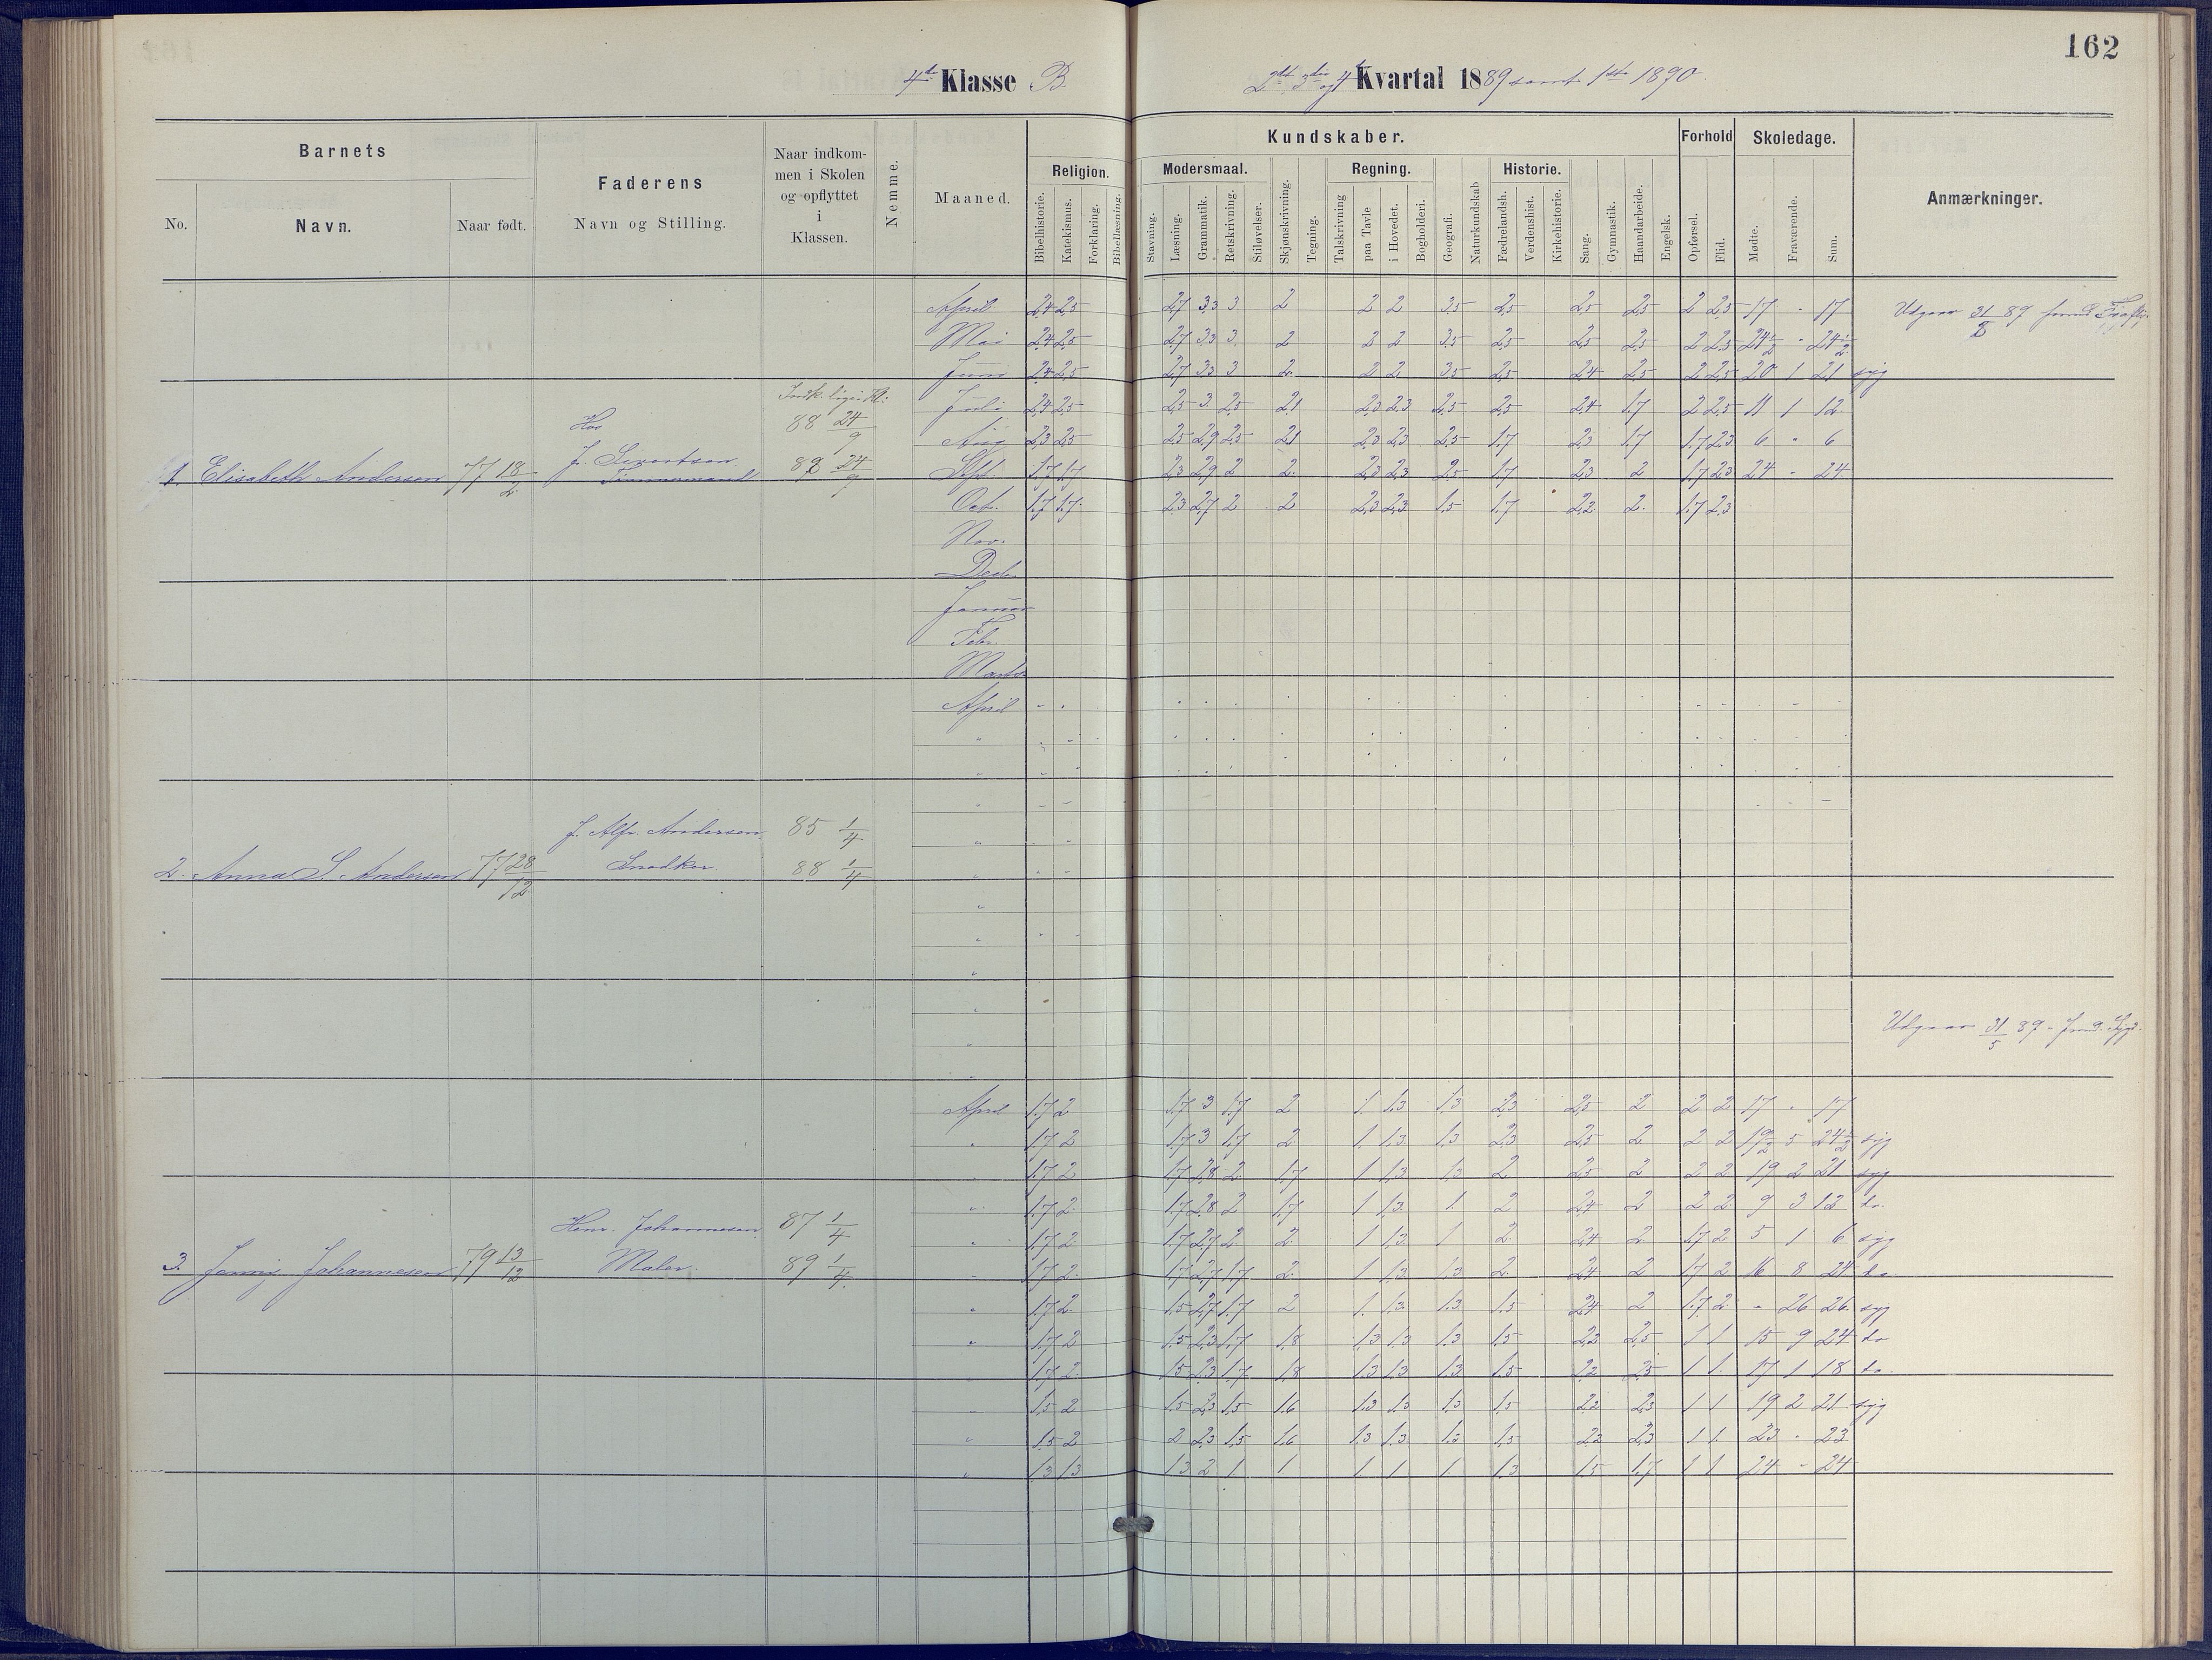 162
4de Klasse B.
2det 3die og 4de Kvartal 1889 samt 1ste 1890.
Barnets
No.
Navn.
Naar født.
Faderens
Navn og Stilling.
Naar indkom-
men i Skolen
og opflyttet
i
Klassen.
Nemme.
Maaned.
Kundskaber.
Religion.
Bibelhistorie.
Katekismus.
Forklaring.
Bibellæsning.
Modersmaal.
Stavning.
Læsning.
Grammatik.
Retskrivning.
Stiløvelser.
Skjønskrivning.
Tegning.
Regning.
Talskrivning
paa Tavle
i Hovedet.
Bogholderi.
Geografi.
Naturkundskab
Historie.
Fædrelandsh.
Verdenshist.
Kirkehistorie.
Sang.
Gymnastik.
Haandarbeide.
Engelsk.
Forhold
Opførsel.
Flid.
Skoledage.
Mødte.
Fraværende.
Sum.
Anmærkninger.
April 2,4 2,5 2,7 3,3 3 2 2 2 3,5 2,5 2,5 2,5 2 2,5 17 - 17 Udgaar 31 89
Mai 2,4 2,5 2,7 3,3 3 2 2 2 3,5 2,5 2,5 2,5 2 2,5 24½ - 24½
Juni 2,4 2,5 2,7 3,3 3 2 2 2 3,5 2,5 2,4 2,5 2 2,5 20 1 21 syg
Juli 2,4 2,5 2,5 3 2,5 2,1 2,3 2,3 2,5 2,5 2,4 1,7 2 2,5 11 1 12
Hos
88 24/9
Aug 2,3 2,5 2,5 2,9 2,5 2,1 2,3 2,3 2,5 1,7 2,3 1,7 1,7 2,3 6 " 6
1. Elisabeth Andersen 77 18/2 J. Sivertsen Tømmermand 89 24/9
Sept. 1,7 1,7 2,3 2,9 2 2 2,3 2,3 2,5 1,7 2,3 2 1,7 2,3 24 - 24
Oct. 1,7 1,7 2,3 2,7 2 2 2,3 2,3 1,5 1,7 2,2 2 1,7 2,3
Nov.
Decb.
Januar
Febr.
Marts
April
J. Alfr. Andersen 85 1/4
2. Anna S. Andersen 77 28/12 Snedker 88 1/4
Udgaar 31/5 89
April 1,7 2 1,7 3 1,7 2 1 1,3 1,3 2,3 2,5 2 2 2 17 - 17
" 1,7 2 1,7 3 1,7 2 1 1,3 1,3 2,3 2,5 2 2 2 19½ 5 24½ syg
" 1,7 2 1,7 2,8 2 1,7 1 1,3 1,3 2 2,5 2 2 2 19 2 21 syg
" 1,7 2 1,7 2,8 2 1,7 1 1,3 1 2 2,4 2 2 2 9 3 12 do
Henr. Johannesen 87 1/4
" 1,7 2 1,7 2,7 2 2 1 1,3 1 2 2,4 2 1,7 2 5 1 6 syg
3. Jenny Johannesen 79 13/12 Maler 89 1/4
" 1,7 2 1,7 2,7 1,7 2 1 1,3 1,3 2 2,4 2 1,7 2 16 8 24 do
" 1,7 2 1,5 2,7 1,7 2 1 1,3 1,3 1,5 2,4 2 1,7 2 " 26 26 syg
" 1,7 2 1,5 2,3 1,7 1,8 1,3 1,3 1,3 1,5 2,2 2,5 1 1 15 9 24 do
" 1,7 2 1,5 2,3 1,7 1,8 1,3 1,3 1,3 1,5 2,2 2,5 1 1 17 1 18 do
" 1,5 2 1,5 2,3 1,5 1,6 1,3 1,3 1,3 1,5 2,2 2,3 1 1 19 2 21 syg
" 1,5 2 2 2,3 1,5 1,6 1,3 1,3 1,3 1,5 2,2 2,3 1 1 23 - 23
" 1,3 1,3 1,3 2 1 1 1 1 1 1,3 1,5 1,7 1 1 24 - 24